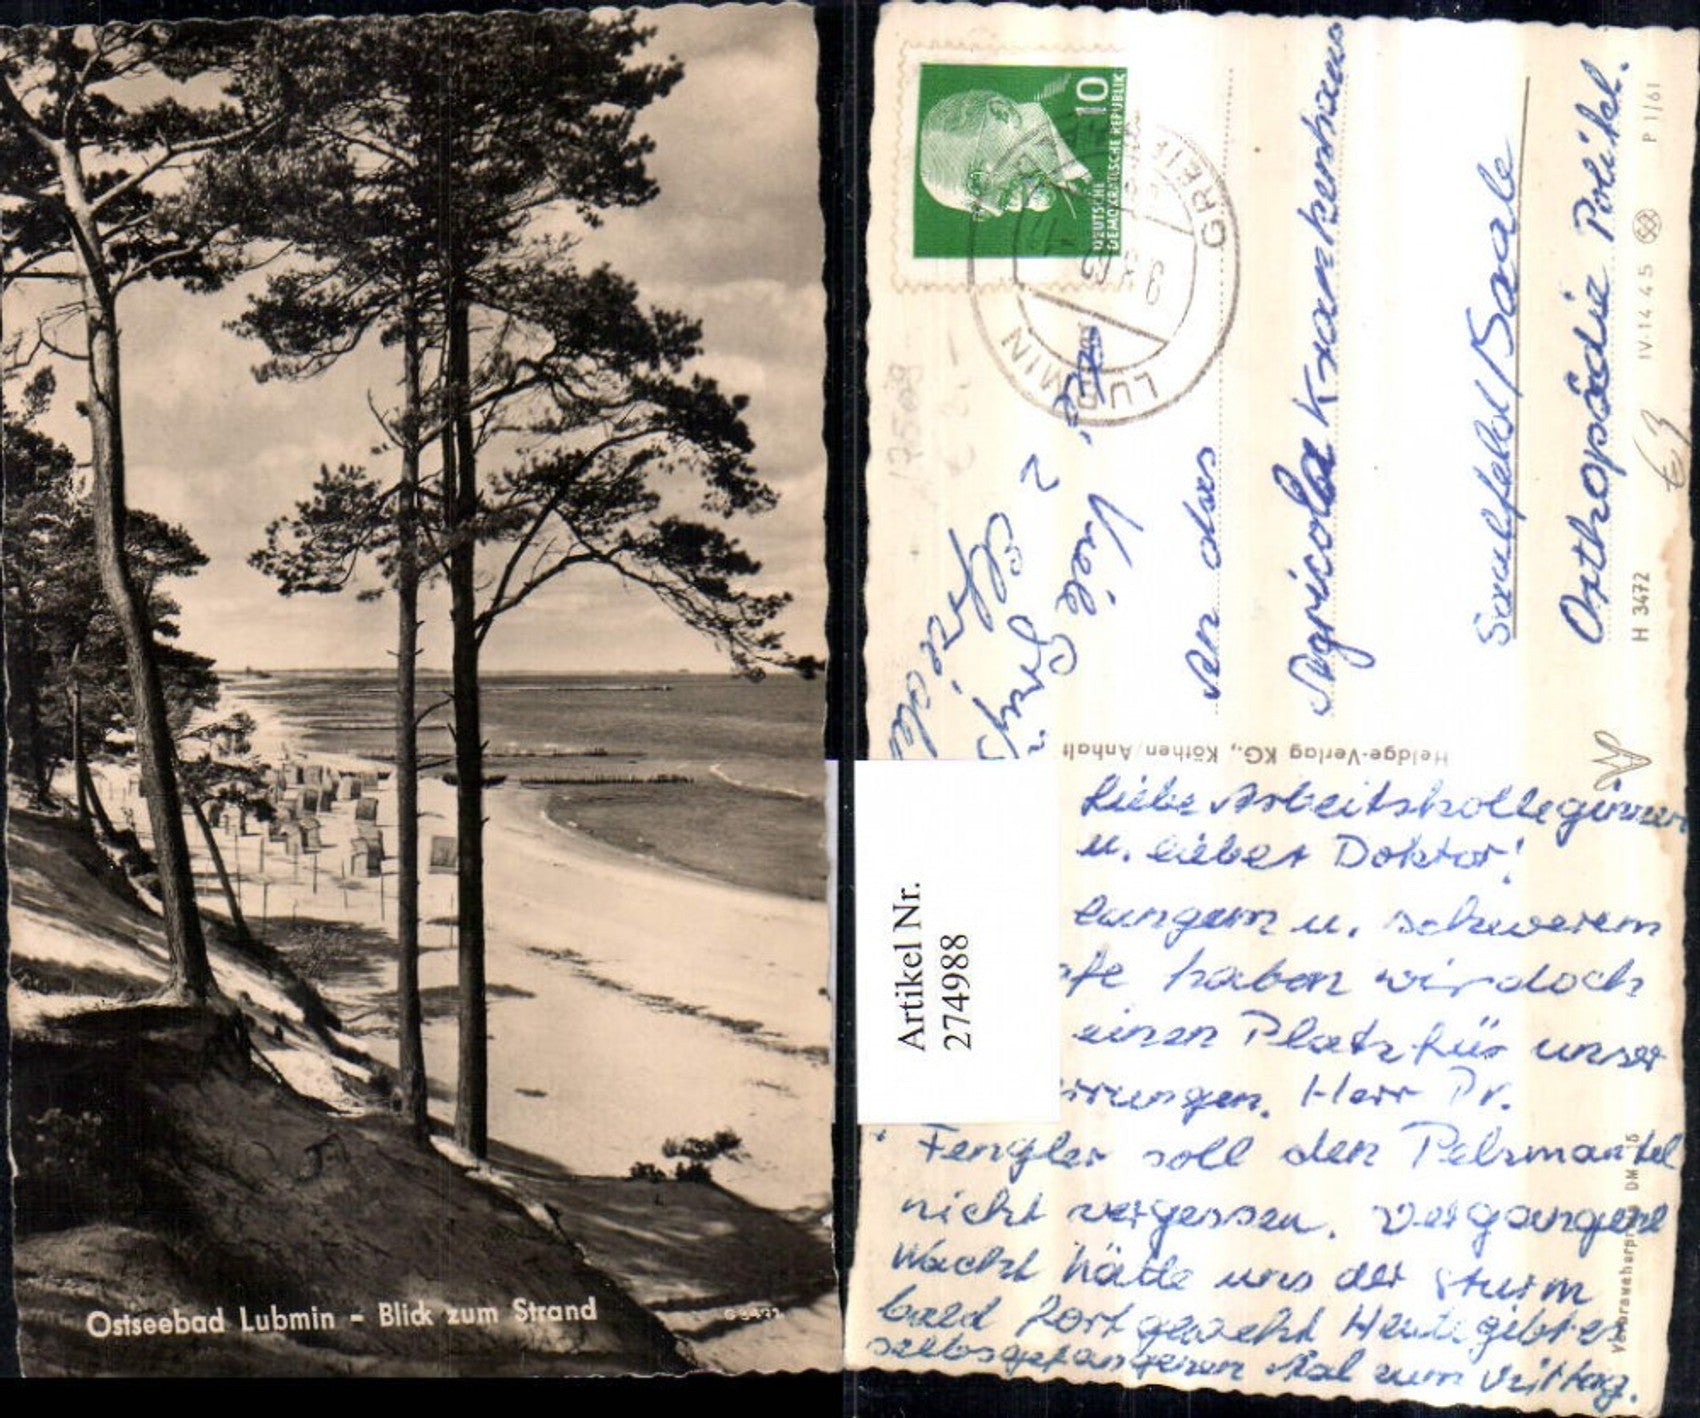 Ostseebad Lubmin - Blick zum Strand
G 3472
10
DEUTSCHE
DEMOKRATISCHE REPUBLIK
LUBMIN
An das
Agricola Krankenhaus
Saalfeld/Saale
Orthopädie Poliкl.
H 3472 IV-14-45 P 1/61
€3
Heldge-Verlag KG., Köthen/Anhalt
Artikel Nr.
274988
Liebe Arbeitskolleginnen
u. lieber Doktor!
langem u. schwerem
haben wir doch
einen Platz für unser
Herr Dr.
Fengler soll den Pelzmantel
nicht vergessen. Vergangene
Nacht hätte uns der Sturm
bald fortgeweht Heute gibt es
selbstgefangenen Aal zum Mittag.
Viele